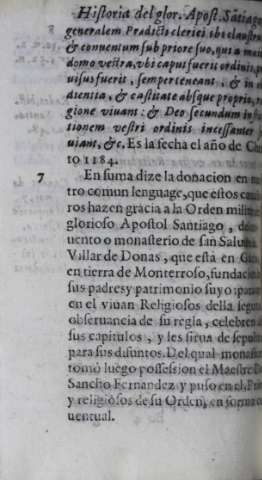 Historia del glor. Apost. Sãtiago
generalem Prædicti clerici ibi claustru
& conuentum sub priore suo, qui a mai
domo vestra, vbi caput fuerit ordinis, p
uisus fuerit, semper teneant, & in
dientia, & castitate absque proprio, r
gione viuant: & Deo secundum in
tionem vestri ordinis incessanter
uiant, &c, Es la fecha el año de Ch
to 1184.
7 En suma dize la donacion en nu
tro comun lenguage, que estos caua
ros hazen gracia a la Orden milita
glorioso Apostol Santiago, de
uento o monasterio de san Salua
Villar de Donas, que està en Ga
en tierra de Monterroso, fundacio
sus padres y patrimonio suyo: para
en el viuan Religiosos della segu
obseruancia de su regla, celebren
sus capitulos, y les sirua de sepul
para sus difuntos. Del qual monast
tomò luego possession el Maestro D
Sancho Fernandez y puso en el, Pri
y religiosos de su Orden, en forma
uentual.